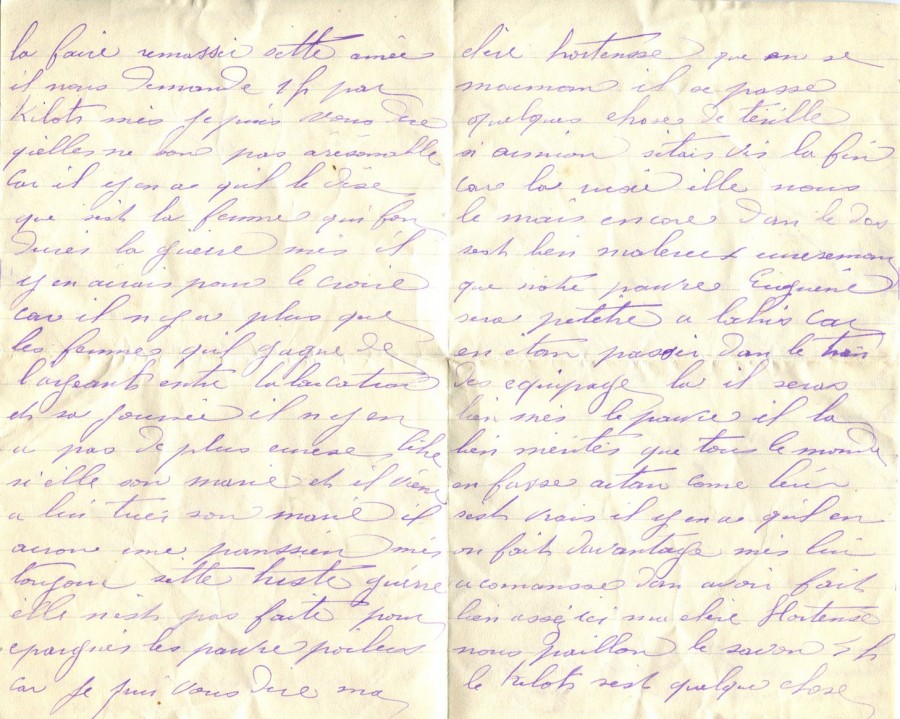 la faire remassir sette anée
il nous demande 1 f par
Kilots mes je puis vous dire
qielles ne son pas arésonable
car il y en as quil le dise
que sest la femme qui fon
durés la guerre mes il
y en aurais pour le croire
car il n y a plus que
les femmes quil gagne de
largeant entre la laucation
et sa journée il n y en
a pas de plus eurese
si elle son marie et il viene
a lui tuer son marie il
auron une panssien mes
toujour sette triste guerre
elle nest pas faite pour
epargnés les pauvre poilus
car je puis vous dire ma
chère hortensse que en se
moeman il se passe
quelques chose de terille
si aumoin setais vis la fin
car la nous
le mais encore dan le dos
sest bien maleureux eureseman
que notre pauvre Euguène
sera petètre a labris car
en etan passér dan le train
des equipage la il seras
bien mes le pauvre il la
bien mérités que tous le monde
en fasse autan come leui
sest vrais il y en as quil en
on fait davantage mes lui
a comansse dan avoir fait
bien assé ici ma chère Hortense
nous paillon le savon 5 f
le Kilots sest quelque chose